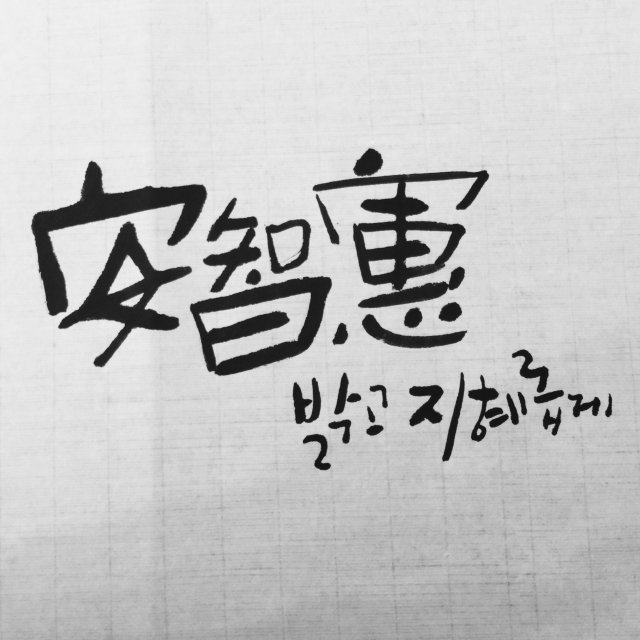 安智憲
밝고 지혜롭게